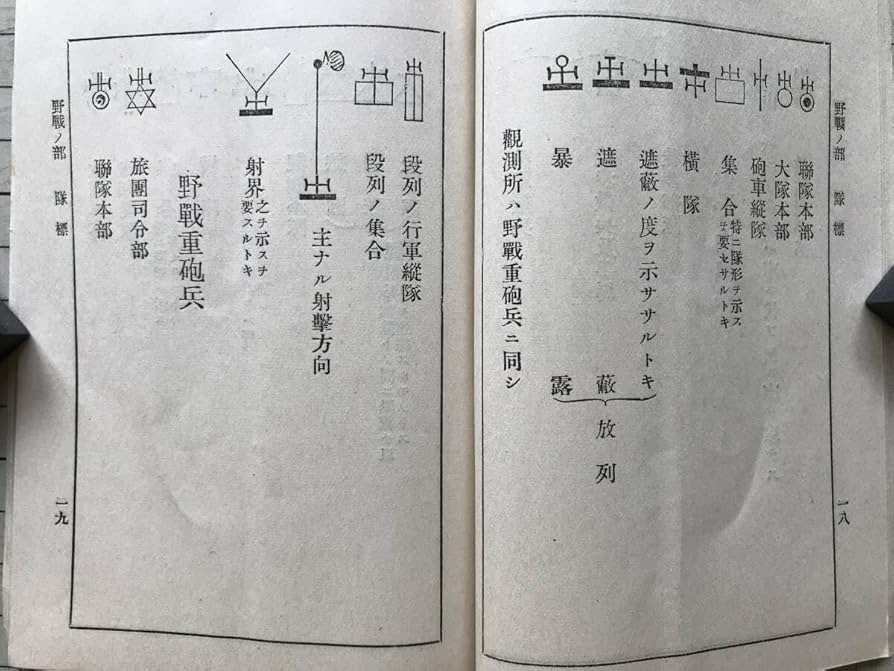 野戰ノ部 隊標
一八
聯隊本部
大隊本部
砲車縱隊
集合 特ニ隊形ヲ示スヲ要セサルトキ
橫隊
遮蔽ノ度ヲ示ササルトキ
遮蔽
暴露
放列
觀測所ハ野戰重砲兵ニ同シ
段列ノ行軍縱隊
段列ノ集合
主ナル射擊方向
射界 之ヲ示スヲ要スルトキ
野戰重砲兵
旅團司令部
聯隊本部
野戰ノ部 隊標
一九